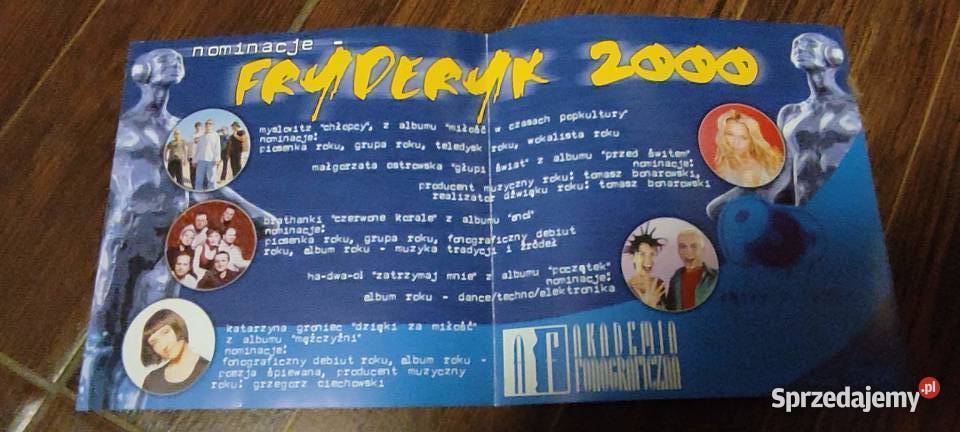 nominacje -
FRYDERYK 2000
myslovitz "chłopcy", z albumu "miłość w czasach popkultury"
nominacje:
piosenka roku, grupa roku, teledysk roku, wokalista roku
małgorzata ostrowska "głupi świat" z albumu "przed świtem"
nominacje:
producent muzyczny roku: tomasz bonarowski,
realizator dźwięku roku: tomasz bonarowski
brathanki "czerwone korale" z albumu "ano!"
nominacje:
piosenka roku, grupa roku, fonograficzny debiut
roku, album roku - muzyka tradycji i źródeł
ha-dwa-o! "zatrzymaj mnie" z albumu "początek"
nominacje:
album roku - dance/techno/elektronika
katarzyna groniec "dzięki za miłość"
z albumu "mężczyźni"
nominacje:
fonograficzny debiut roku, album roku -
poezja śpiewana, producent muzyczny
roku: grzegorz ciechowski
AF AKADEMIA
FONOGRAFICZNA
Sprzedajemy.pl